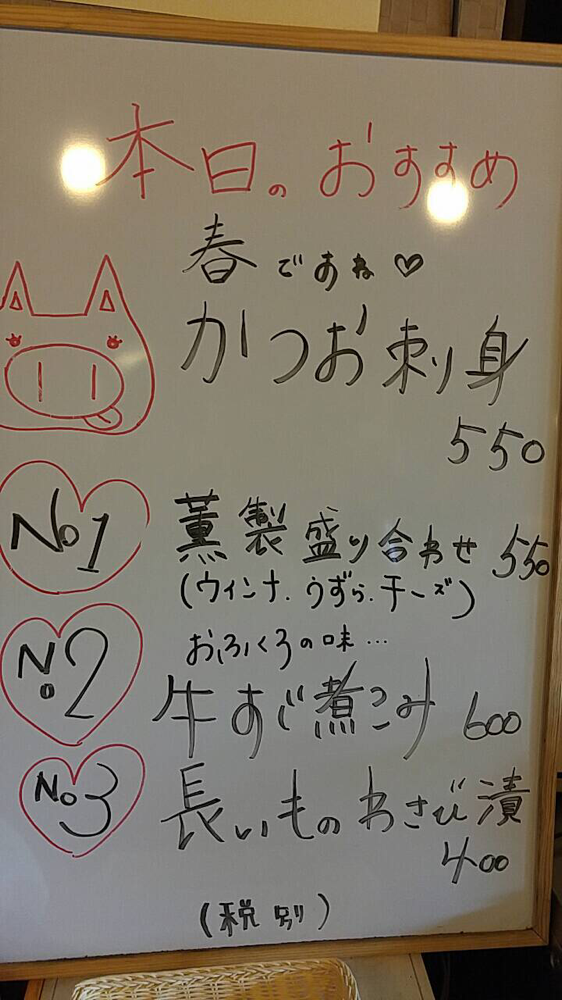 本日のおすすめ
春ですね♡
かつお刺身
550
No1 薫製盛り合わせ 550
(ウィンナ.うずら.チーズ)
おふくろの味…
No2 牛すじ煮こみ 600
No3 長いものわさび漬
400
(税別)